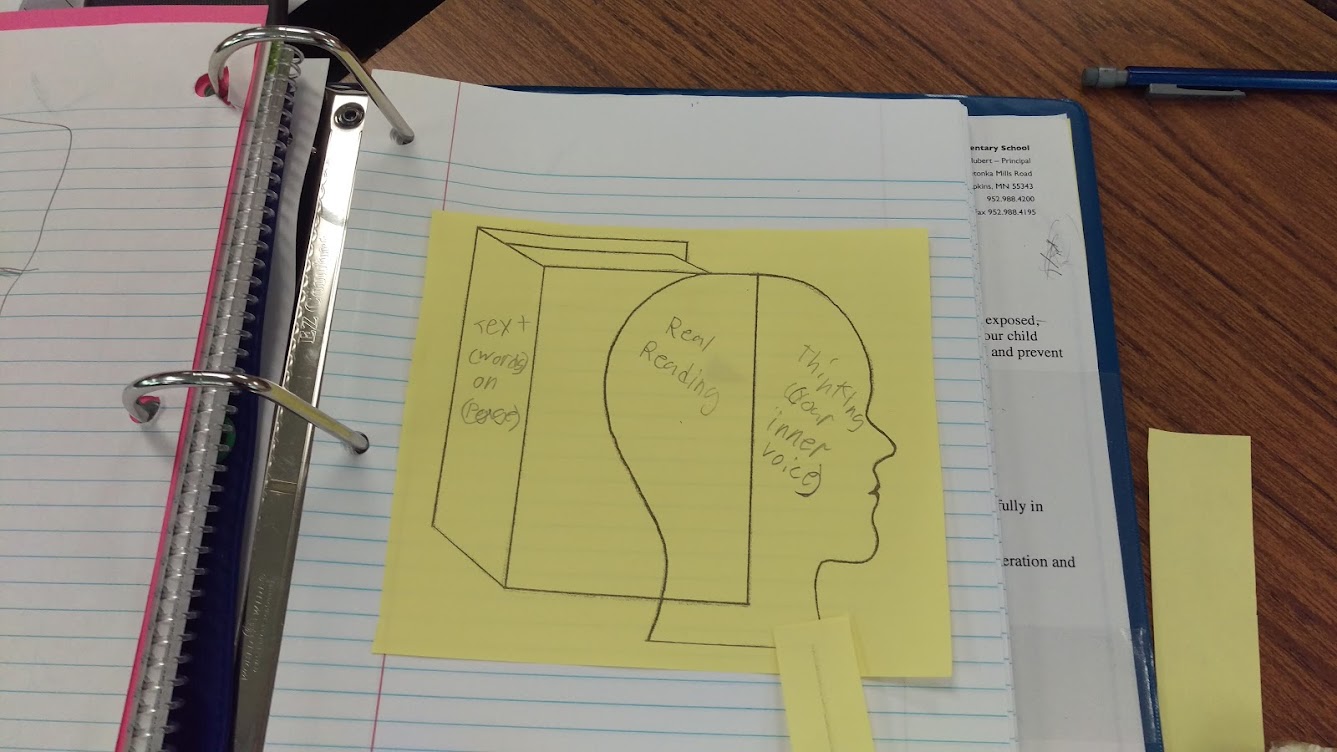 Text
(words)
on
Real
Reading
Thinking
(Your
inner
voice)
entary School
ubert – Principal
tonka Mills Road
pkins, MN 55343
952.988.4200
Fax 952.988.4195
exposed,
our child
and prevent
fully in
eration and